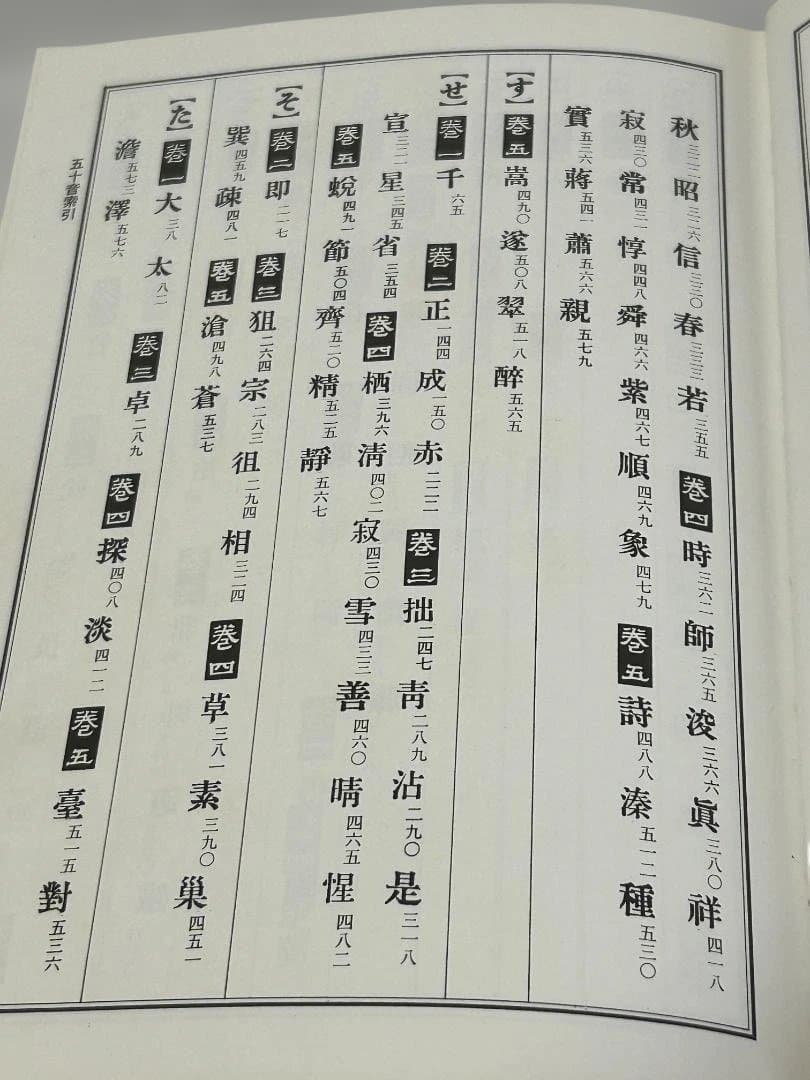 秋三二二 昭三二六 信三三〇 春三三三 若三五五 卷四 時三六二 師三六五 浚三六六 眞三八〇 祥四一八
寂四三〇 常四三一 惇四四八 舜四六六 紫四六七 順四六九 象四七九 卷五 詩四八八 溱五一二 種五三〇
實五三六 蔣五四一 蕭五六六 親五七九
【す】 卷五 嵩四九〇 遂五〇八 翠五一八 醉五六五
【せ】 卷一 千六五 卷二 正一四四 成一五〇 赤二二二 卷三 拙二四七 靑二八九 沾二九〇 是三一八
宣三二一 星三四五 省三五四 卷四 栖三九六 淸四〇二 寂四三〇 雪四三三 善四六〇 晴四六五 惺四八二
卷五 蛻四九一 節五〇四 齊五二〇 精五二五 靜五六七
【そ】 卷二 即二一七 卷三 狙二六四 宗二八三 徂二九四 相三二四 卷四 草三八一 素三九〇 巢四五一
巽四五九 疎四八一 卷五 滄四九八 蒼五三七
【た】 卷一 大三八 太八二 卷三 卓二八九 卷四 探四〇八 淡四一二 卷五 臺五一五 對五三六
澹五七三 澤五七六
五十音索引